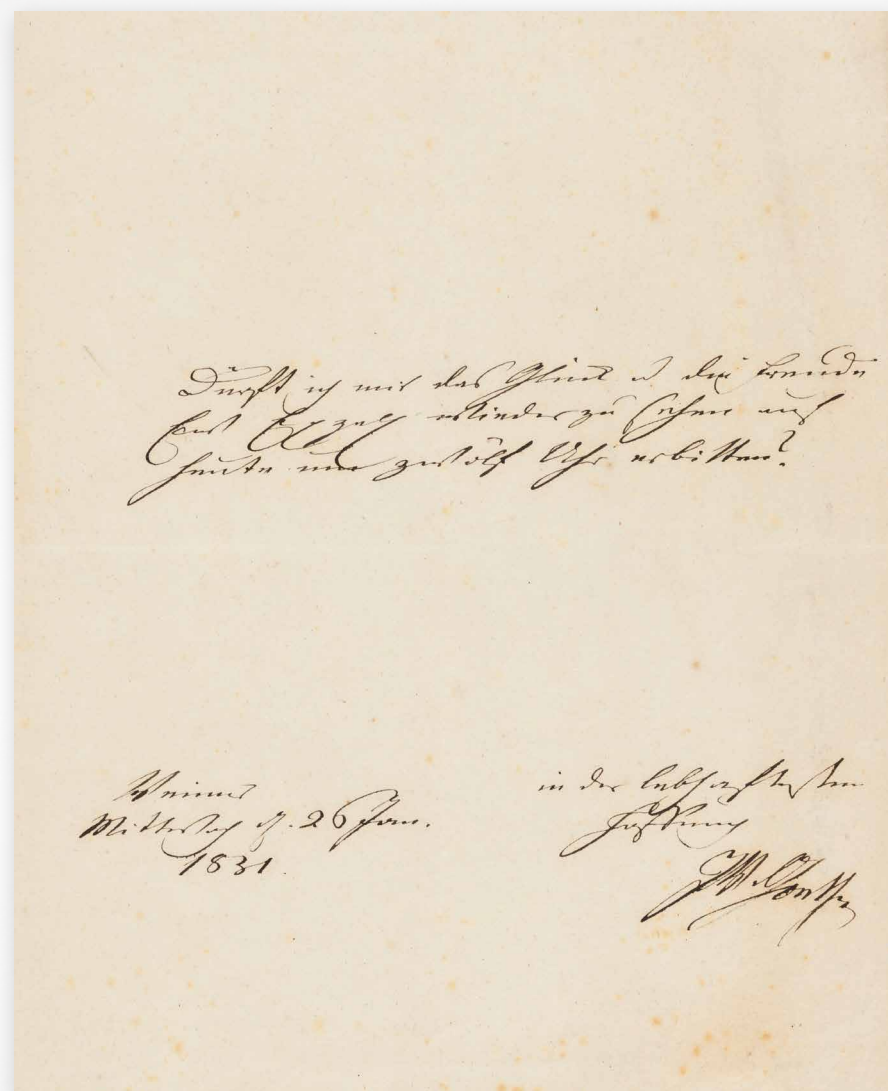 Dürft ich mir das Glück u die Freude
Ew Exzell wiederzusehen auf
heute um zwölf Uhr erbitten?
Weimar
Mittwoch d. 26 Jan.
1831.
in der lebhaftesten
Hoffnung
JWvGoethe